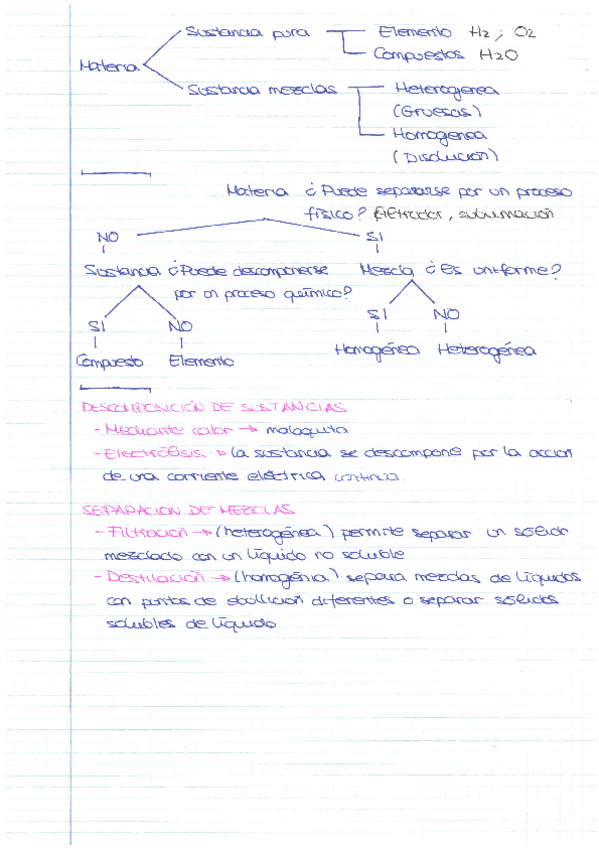 Sustancia pura Elemento H2 ; O2
Materia Compuestos H2O
Sustancia mezclas Heterogenea
(Gruesas)
Homogenea
(Disolución)
Materia ¿Puede separarse por un proceso
físico? Filtrador, sublimación
NO SI
Sustancia ¿Puede descomponerse Mezcla ¿Es uniforme?
por un proceso químico?
SI NO SI NO
Compuesto Elemento Homogénea Heterogénea
DESCOMPOSICIÓN DE SUSTANCIAS
- Mediante calor → malaquita
- Electrólisis → la sustancia se descompone por la acción
de una corriente eléctrica continua.
SEPARACIÓN DE MEZCLAS
- Filtración → (heterogénea) permite separar un sólido
mezclado con un líquido no soluble
- Destilación → (homogénia) separa mezclas de líquidos
con puntos de ebullición diferentes o separar sólidos
solubles de líquido